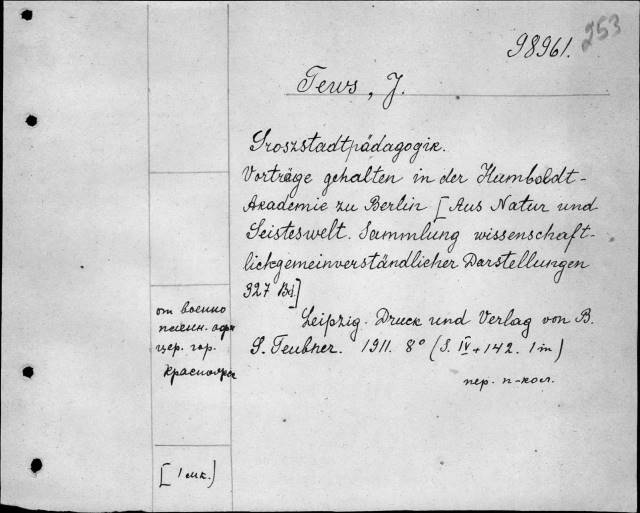 253
98961.
Tews, J.
Groszstadtpädagogik.
Vorträge gehalten in der Humboldt-
Akademie zu Berlin [Aus Natur und
Geisteswelt. Sammlung wissenschaft-
lichgemeinverständlicher Darstellungen
327 Bd]
Leipzig. Druck und Verlag von B.
G. Teubner. 1911. 8° (S. IV + 142. 1 m)
пер. п-кол.
от военно
пленн. офи
цер. гор.
Красноярск
[1 мк.)